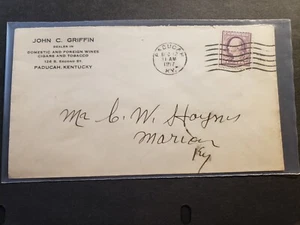 JOHN C. GRIFFIN
DEALER IN
DOMESTIC AND FOREIGN WINES
CIGARS AND TOBACCO
PADUCAH, KENTUCKY
PADUCAH
11 AM
1917
KY.
Mr C. W. Haynes
Marion
Ky